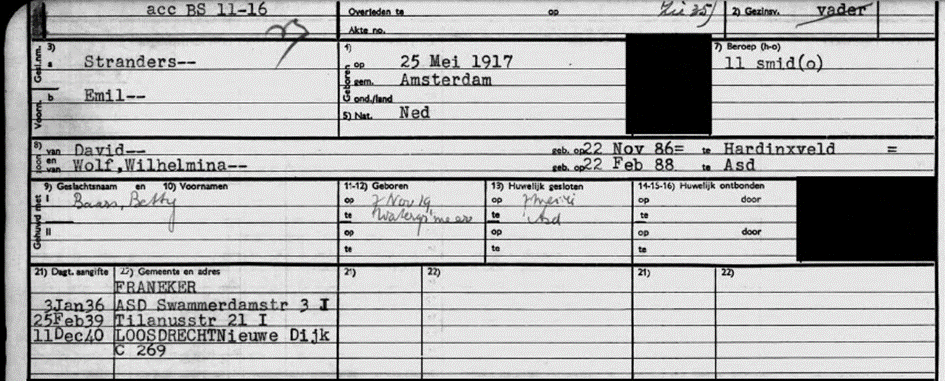 acc BS 11-16
Overleden te op Zie 35)
2) Gezinsv. vader
Akte no.
3)
Gesl.nm. a Stranders--
Voorn. b Emil--
4)
Geboren op 25 Mei 1917
gem. Amsterdam
ond./land
5) Nat. Ned
7) Beroep (h-o)
11 smid(o)
8) zoon van David-- geb. op 22 Nov 86= te Hardinxveld =
en van Wolf,Wilhelmina-- geb. op 22 Feb 88 te Asd
9) Geslachtsnaam en 10) Voornamen 11-12) Geboren 13) Huwelijk gesloten 14-15-16) Huwelijk ontbonden
Gehuwd met
I Baars, Betty op 7 Nov 19 op op door
te te Asd te
II op op op door
te te te
21) Dagt. aangifte 22) Gemeente en adres 21) 22) 21) 22)
FRANEKER
3Jan36 ASD Swammerdamstr 3 I
25Feb39 Tilanusstr 21 I
11Dec40 LOOSDRECHTNieuwe Dijk
C 269